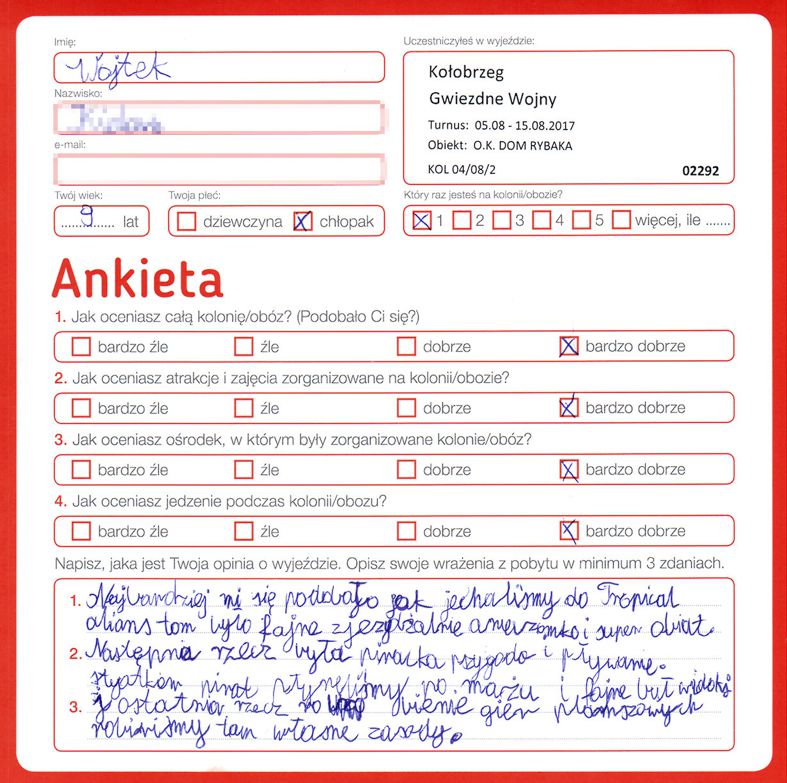 Imię:
Wojtek
Uczestniczyłeś w wyjeździe:
Kołobrzeg
Gwiezdne Wojny
Turnus: 05.08 - 15.08.2017
Obiekt: O.K. DOM RYBAKA
KOL 04/08/2
02292
Nazwisko:
e-mail:
Twój wiek:
9 lat
Twoja płeć:
dziewczyna chłopak
Który raz jesteś na kolonii/obozie?
1 2 3 4 5 więcej, ile .......
Ankieta
1. Jak oceniasz całą kolonię/obóz? (Podobało Ci się?)
bardzo źle źle dobrze bardzo dobrze
2. Jak oceniasz atrakcje i zajęcia zorganizowane na kolonii/obozie?
bardzo źle źle dobrze bardzo dobrze
3. Jak oceniasz ośrodek, w którym były zorganizowane kolonie/obóz?
bardzo źle źle dobrze bardzo dobrze
4. Jak oceniasz jedzenie podczas kolonii/obozu?
bardzo źle źle dobrze bardzo dobrze
Napisz, jaka jest Twoja opinia o wyjeździe. Opisz swoje wrażenia z pobytu w minimum 3 zdaniach.
1. Najbardziej mi się podobało jak jechaliśmy do Tropical
tam było fajne i super obiat.
2. Następna rzecz była piracka przygoda i pływanie.
statkiem pirat płyneliśmy po morzu i fajne był widoki
3. i ostatnia rzecz to gier planszowych
robiliśmy tam własne zasady.